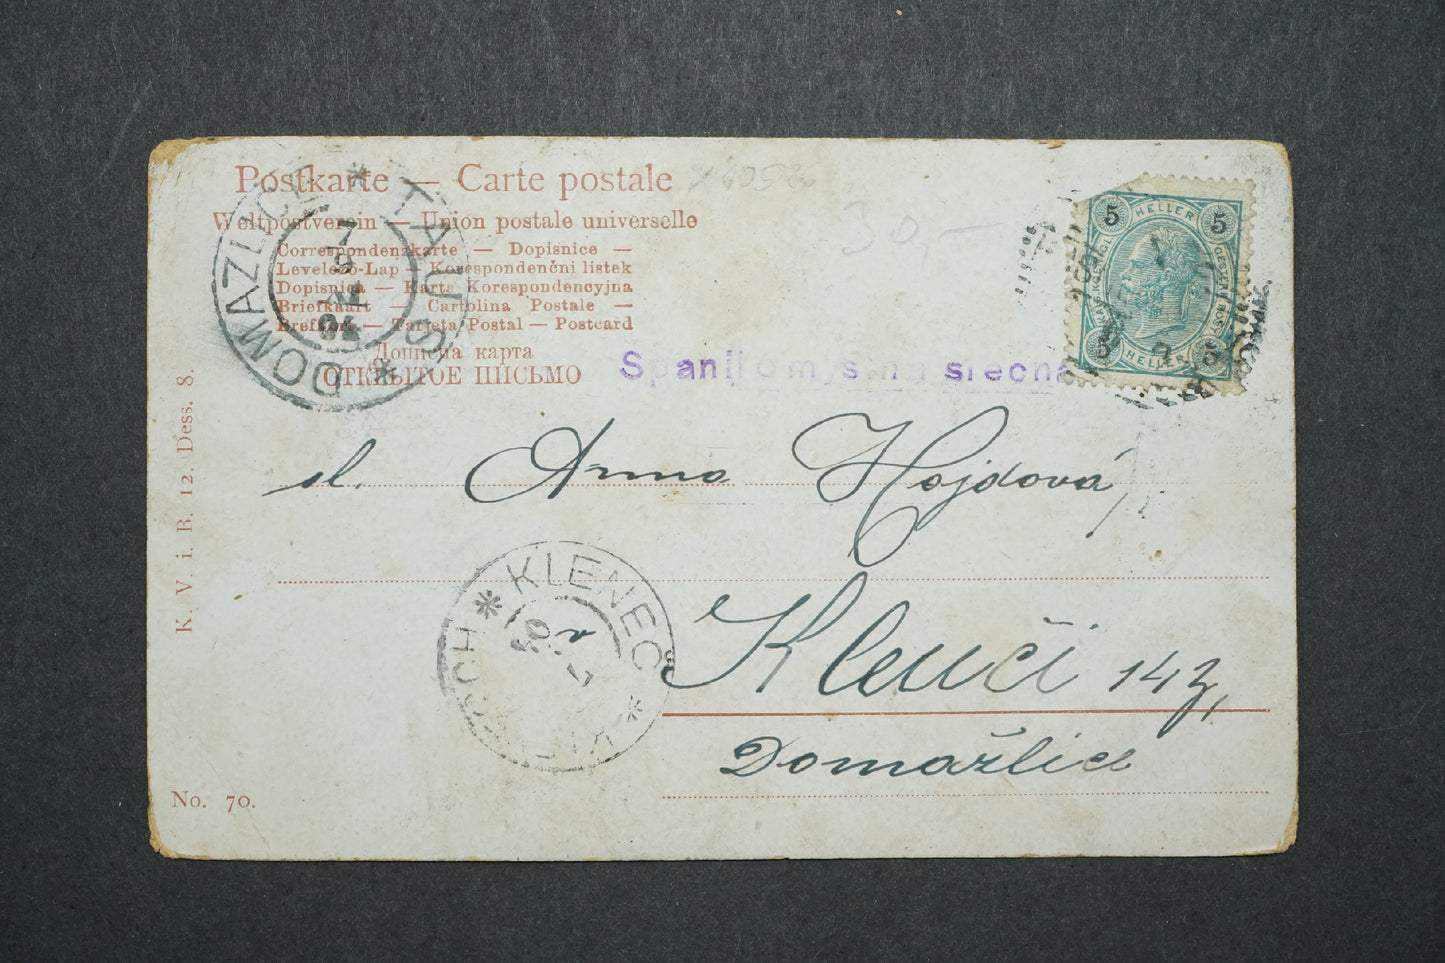 Postkarte — Carte postale
Weltpostverein — Union postale universelle
Correspondenzkarte — Dopisnice —
Levelező-Lap — Korespondenčni listek
Dopisnica — Karta Korespondencyjna
Briefkaart — Cartolina Postale —
Brefkort — Tarjeta Postal — Postcard
Дописна карта
ОТКРЫТОЕ ПИСЬМО
TAUS
DOMAZLICE
7
9
04
30,–
5 HELLER 5
5 HELLER 5
slečna
sl. Anna Hojdová
v Klenčí 143,
Domažlice
KLENEČ
K. V. i. B. 12. Dess. 8.
No. 70.